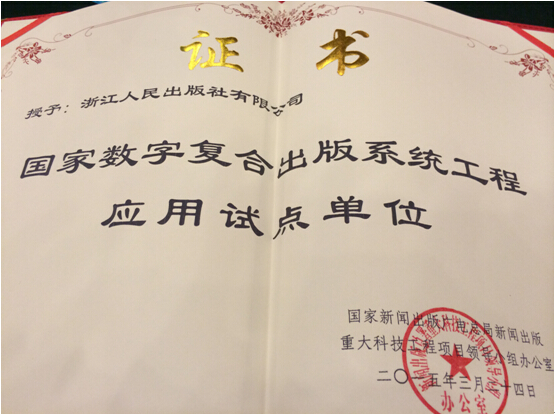 证书
授予：浙江人民出版社有限公司
国家数字复合出版系统工程
应用试点单位
国家新闻出版广电总局新闻出版
重大科技工程项目领导小组办公室
二〇一五年三月二十四日
办公室